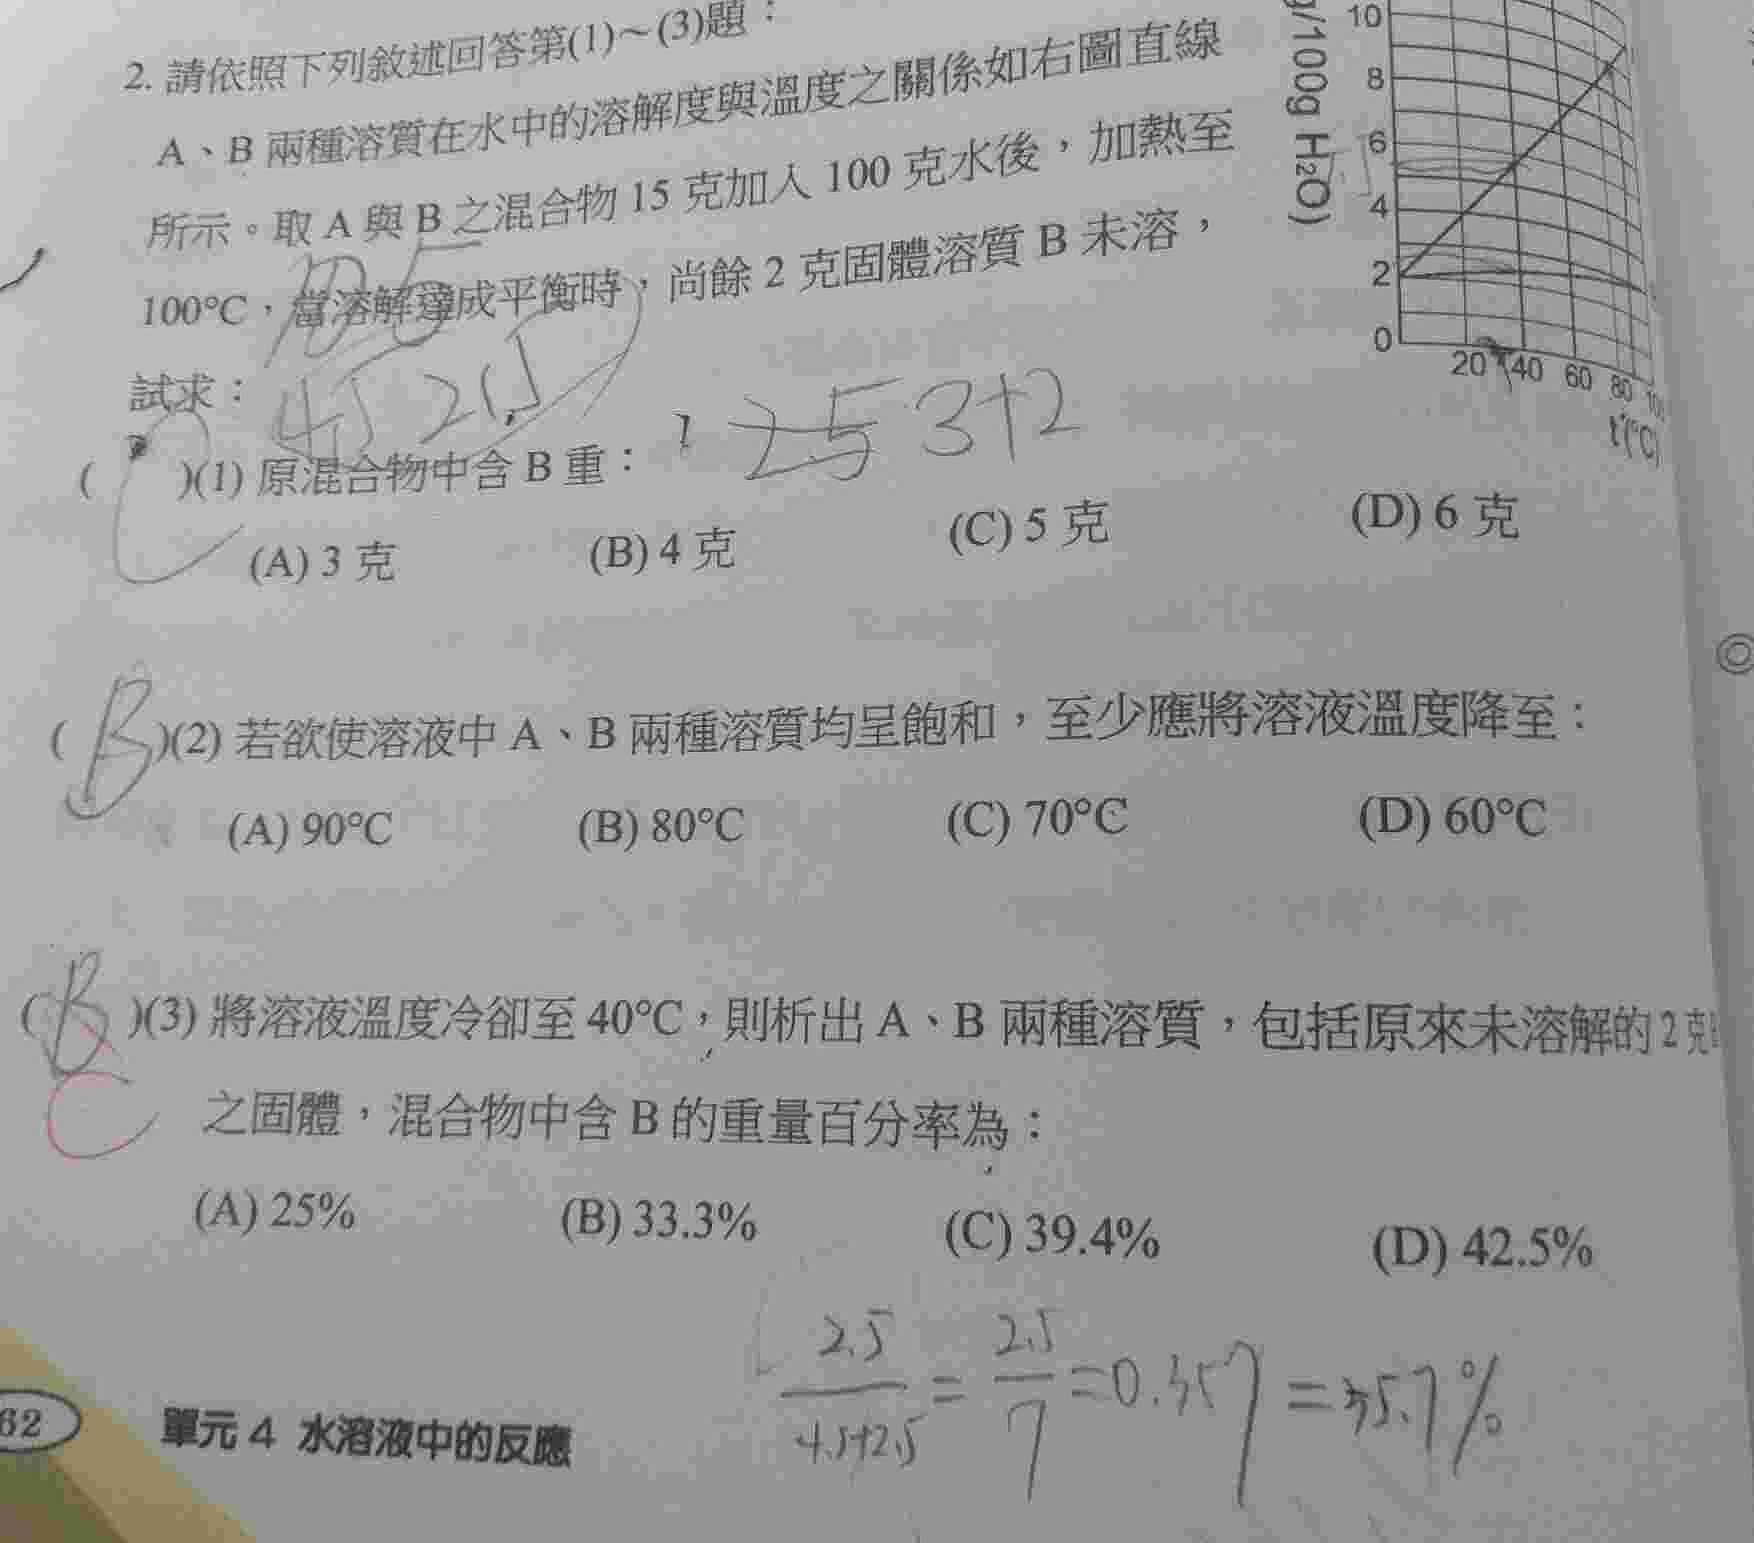 2. 請依照下列敘述回答第(1)～(3)題：
A、B 兩種溶質在水中的溶解度與溫度之關係如右圖直線
所示。取 A 與 B 之混合物 15 克加入 100 克水後，加熱至
100°C，當溶解達成平衡時，尚餘 2 克固體溶質 B 未溶，
試求：
g/100g H₂O)
10
8
6
4
2
0
20 40 60 80 100
t(°C)
4.5 2.5
2.5 3+2
( C )(1) 原混合物中含 B 重：
(A) 3 克 (B) 4 克 (C) 5 克 (D) 6 克
( B )(2) 若欲使溶液中 A、B 兩種溶質均呈飽和，至少應將溶液溫度降至：
(A) 90°C (B) 80°C (C) 70°C (D) 60°C
( B )(3) 將溶液溫度冷卻至 40°C，則析出 A、B 兩種溶質，包括原來未溶解的 2 克
C
之固體，混合物中含 B 的重量百分率為：
(A) 25% (B) 33.3% (C) 39.4% (D) 42.5%
2.5/4.5+2.5 = 2.5/7 = 0.357 = 35.7%
62 單元 4 水溶液中的反應